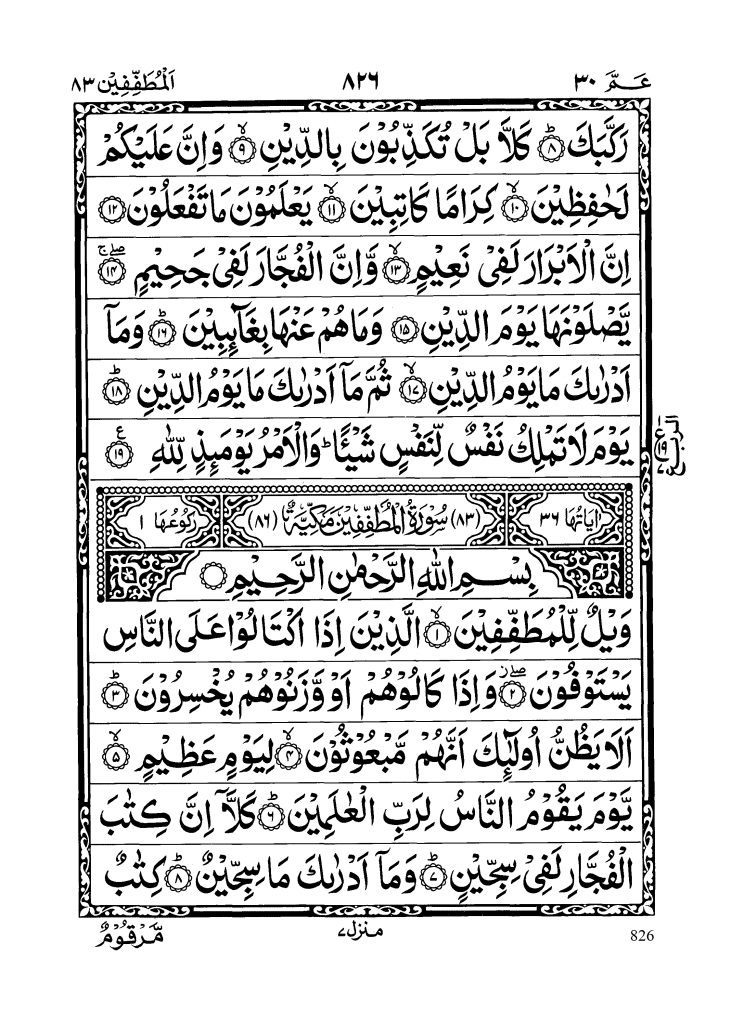 عَمَّ ٣٠ ٨٢٦ اَلْمُطَفِّفِيْن ٨٣
رَكَّبَكَ ﴿٨﴾ؕ كَلَّا بَلْ تُكَذِّبُوْنَ بِالدِّيْنِ ﴿٩﴾ۙ وَاِنَّ عَلَيْكُمْ
لَحٰفِظِيْنَ ﴿١٠﴾ۙ كِرَامًا كَاتِبِيْنَ ﴿١١﴾ۙ يَعْلَمُوْنَ مَا تَفْعَلُوْنَ ﴿١٢﴾
اِنَّ الْاَبْرَارَ لَفِيْ نَعِيْمٍ ﴿١٣﴾ۙ وَّاِنَّ الْفُجَّارَ لَفِيْ جَحِيْمٍ ﴿١٤﴾ۖۚ
يَّصْلَوْنَهَا يَوْمَ الدِّيْنِ ﴿١٥﴾ وَمَا هُمْ عَنْهَا بِغَآئِبِيْنَ ﴿١٦﴾ؕ وَمَآ
اَدْرٰىكَ مَا يَوْمُ الدِّيْنِ ﴿١٧﴾ۙ ثُمَّ مَآ اَدْرٰىكَ مَا يَوْمُ الدِّيْنِ ﴿١٨﴾ؕ
يَوْمَ لَا تَمْلِكُ نَفْسٌ لِّنَفْسٍ شَيْئًا ؕ وَالْاَمْرُ يَوْمَئِذٍ لِّلّٰهِ ﴿١٩﴾ ع
اٰيَاتُهَا ٣٦ (٨٣) سُوْرَةُ الْمُطَفِّفِيْنَ مَكِّيَّةٌ (٨٦) رُكُوْعُهَا ١
بِسْمِ اللّٰهِ الرَّحْمٰنِ الرَّحِيْمِ
وَيْلٌ لِّلْمُطَفِّفِيْنَ ﴿١﴾ۙ الَّذِيْنَ اِذَا اكْتَالُوْا عَلَى النَّاسِ
يَسْتَوْفُوْنَ ﴿٢﴾ۖز وَاِذَا كَالُوْهُمْ اَوْ وَّزَنُوْهُمْ يُخْسِرُوْنَ ﴿٣﴾ؕ
اَلَا يَظُنُّ اُولٰٓئِكَ اَنَّهُمْ مَّبْعُوْثُوْنَ ﴿٤﴾ۙ لِيَوْمٍ عَظِيْمٍ ﴿٥﴾ۙ
يَّوْمَ يَقُوْمُ النَّاسُ لِرَبِّ الْعٰلَمِيْنَ ﴿٦﴾ؕ كَلَّآ اِنَّ كِتٰبَ
الْفُجَّارِ لَفِيْ سِجِّيْنٍ ﴿٧﴾ؕ وَمَآ اَدْرٰىكَ مَا سِجِّيْنٌ ﴿٨﴾ؕ كِتٰبٌ
826 منزل ٧ مَّرْقُوْمٌ